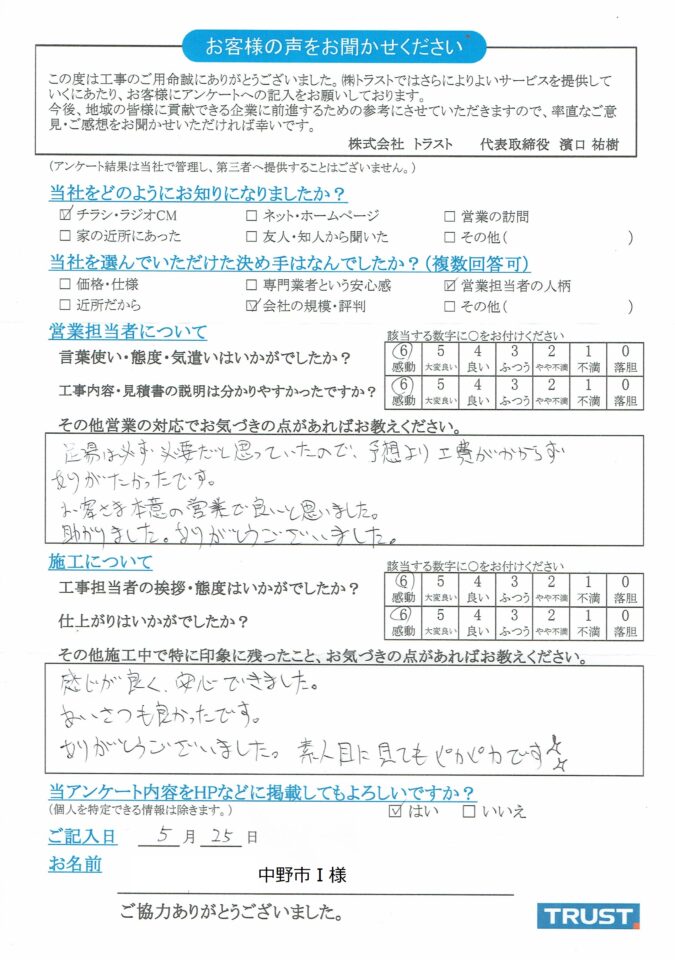 お客様の声をお聞かせください
この度は工事のご用命誠にありがとうございました。㈱トラストではさらによりよいサービスを提供して
いくにあたり、お客様にアンケートへの記入をお願いしております。
今後、地域の皆様に貢献できる企業に前進するための参考にさせていただきますので、率直なご意
見・ご感想をお聞かせいただければ幸いです。
株式会社 トラスト 代表取締役 濱口 祐樹
(アンケート結果は当社で管理し、第三者へ提供することはございません。)
当社をどのようにお知りになりましたか？
☑ チラシ・ラジオCM □ ネット・ホームページ □ 営業の訪問
□ 家の近所にあった □ 友人・知人から聞いた □ その他( )
当社を選んでいただけた決め手はなんでしたか？(複数回答可)
□ 価格・仕様 □ 専門業者という安心感 ☑ 営業担当者の人柄
□ 近所だから ☑ 会社の規模・評判 □ その他( )
営業担当者について
該当する数字に○をお付けください
言葉使い・態度・気遣いはいかがでしたか？
6 5 4 3 2 1 0
感動 大変良い 良い ふつう やや不満 不満 落胆
工事内容・見積書の説明は分かりやすかったですか？
6 5 4 3 2 1 0
感動 大変良い 良い ふつう やや不満 不満 落胆
その他営業の対応でお気づきの点があればお教えください。
足場は必ず必要だと思っていたので、予想より工費がかからず
ありがたかったです。
お客さま本意の営業で良いと思いました。
助かりました。ありがとうございました。
施工について
該当する数字に○をお付けください
工事担当者の挨拶・態度はいかがでしたか？
6 5 4 3 2 1 0
感動 大変良い 良い ふつう やや不満 不満 落胆
仕上がりはいかがでしたか？
6 5 4 3 2 1 0
感動 大変良い 良い ふつう やや不満 不満 落胆
その他施工中で特に印象に残ったこと、お気づきの点があればお教えください。
感じが良く、安心できました。
あいさつも良かったです。
ありがとうございました。素人目に見てもピカピカです☆☆
当アンケート内容をHPなどに掲載してもよろしいですか？
(個人を特定できる情報は除きます。)
☑ はい □ いいえ
ご記入日 5 月 25 日
お名前
中野市Ｉ様
ご協力ありがとうございました。
TRUST.